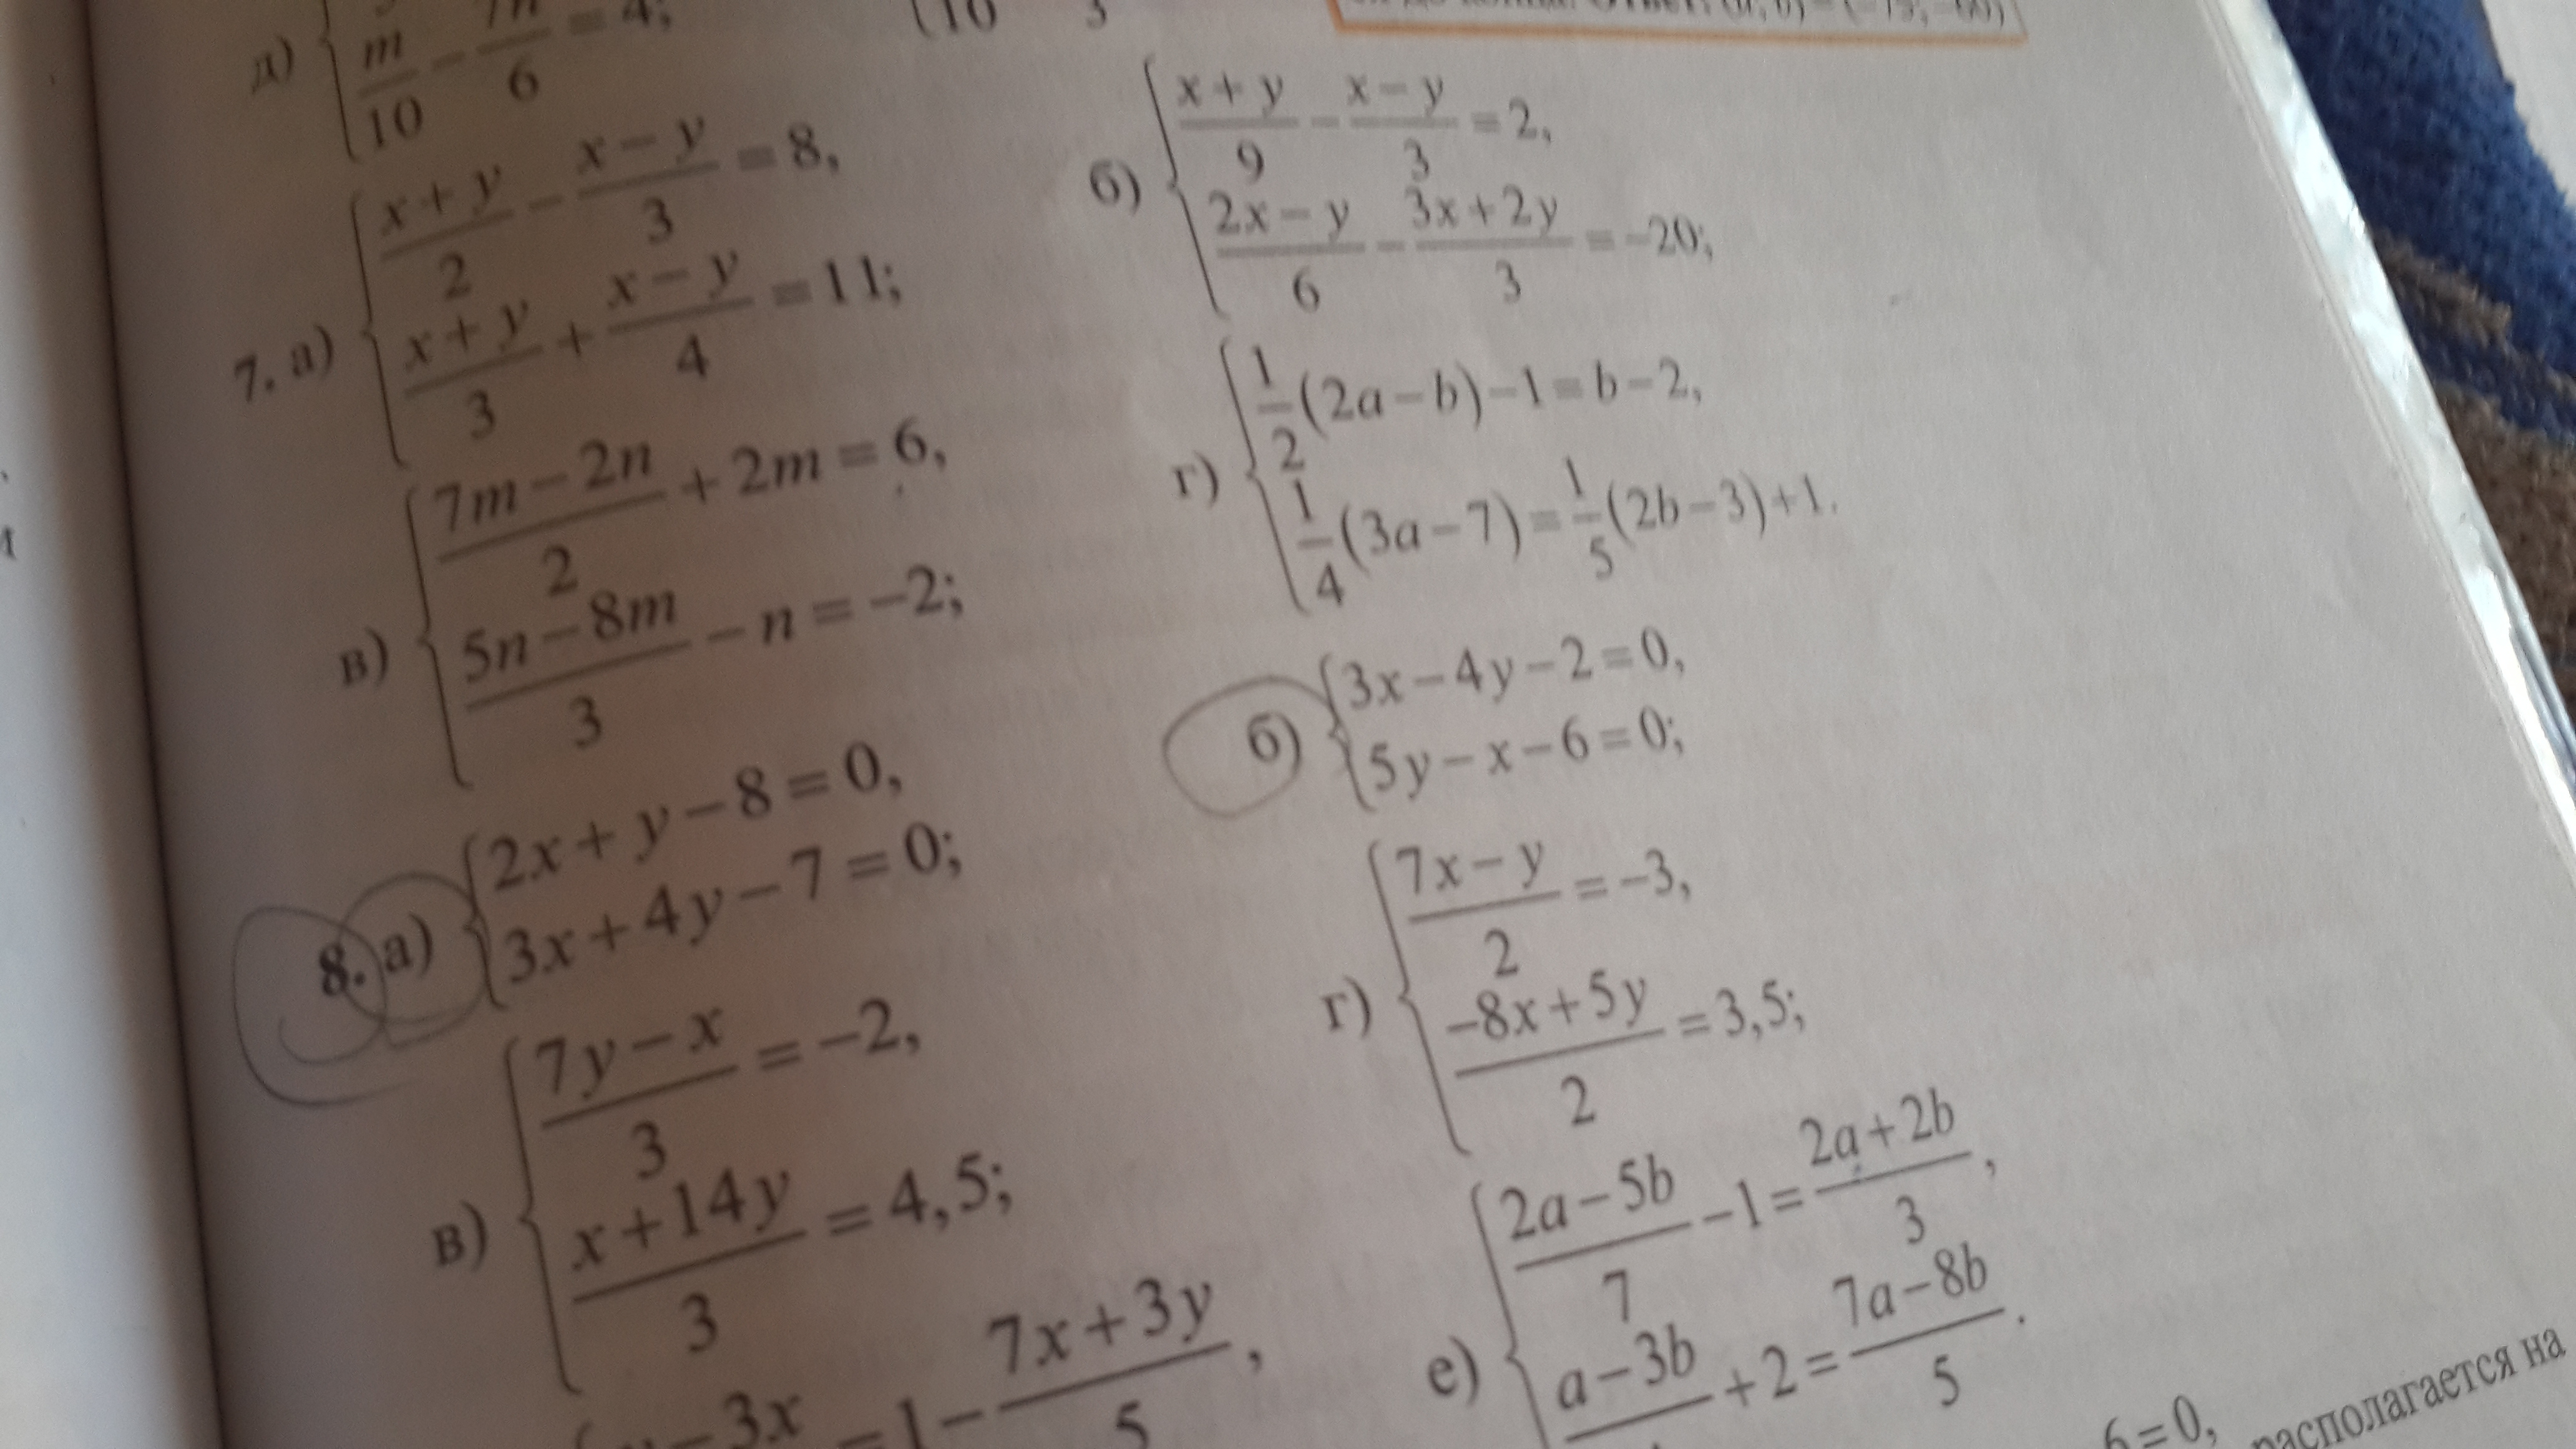 д) m/10 − 7n/6 = 4;
7. а) { (x + y)/2 − (x − y)/3 = 8,
(x + y)/3 + (x − y)/4 = 11;
б) { (x + y)/9 − (x − y)/3 = 2,
(2x − y)/6 − (3x + 2y)/3 = −20;
в) { (7m − 2n)/2 + 2m = 6,
(5n − 8m)/3 − n = −2;
г) { 1/2(2a − b) − 1 = b − 2,
1/4(3a − 7) = 1/5(2b − 3) + 1.
8. а) { 2x + y − 8 = 0,
3x + 4y − 7 = 0;
б) { 3x − 4y − 2 = 0,
5y − x − 6 = 0;
в) { (7y − x)/3 = −2,
(x + 14y)/3 = 4,5;
г) { (7x − y)/2 = −3,
(−8x + 5y)/2 = 3,5;
− 3x = 1 − (7x + 3y)/5,
е) { (2a − 5b)/7 − 1 = (2a + 2b)/3,
a − 3b + 2 = (7a − 8b)/5.
6 = 0,
располагается на